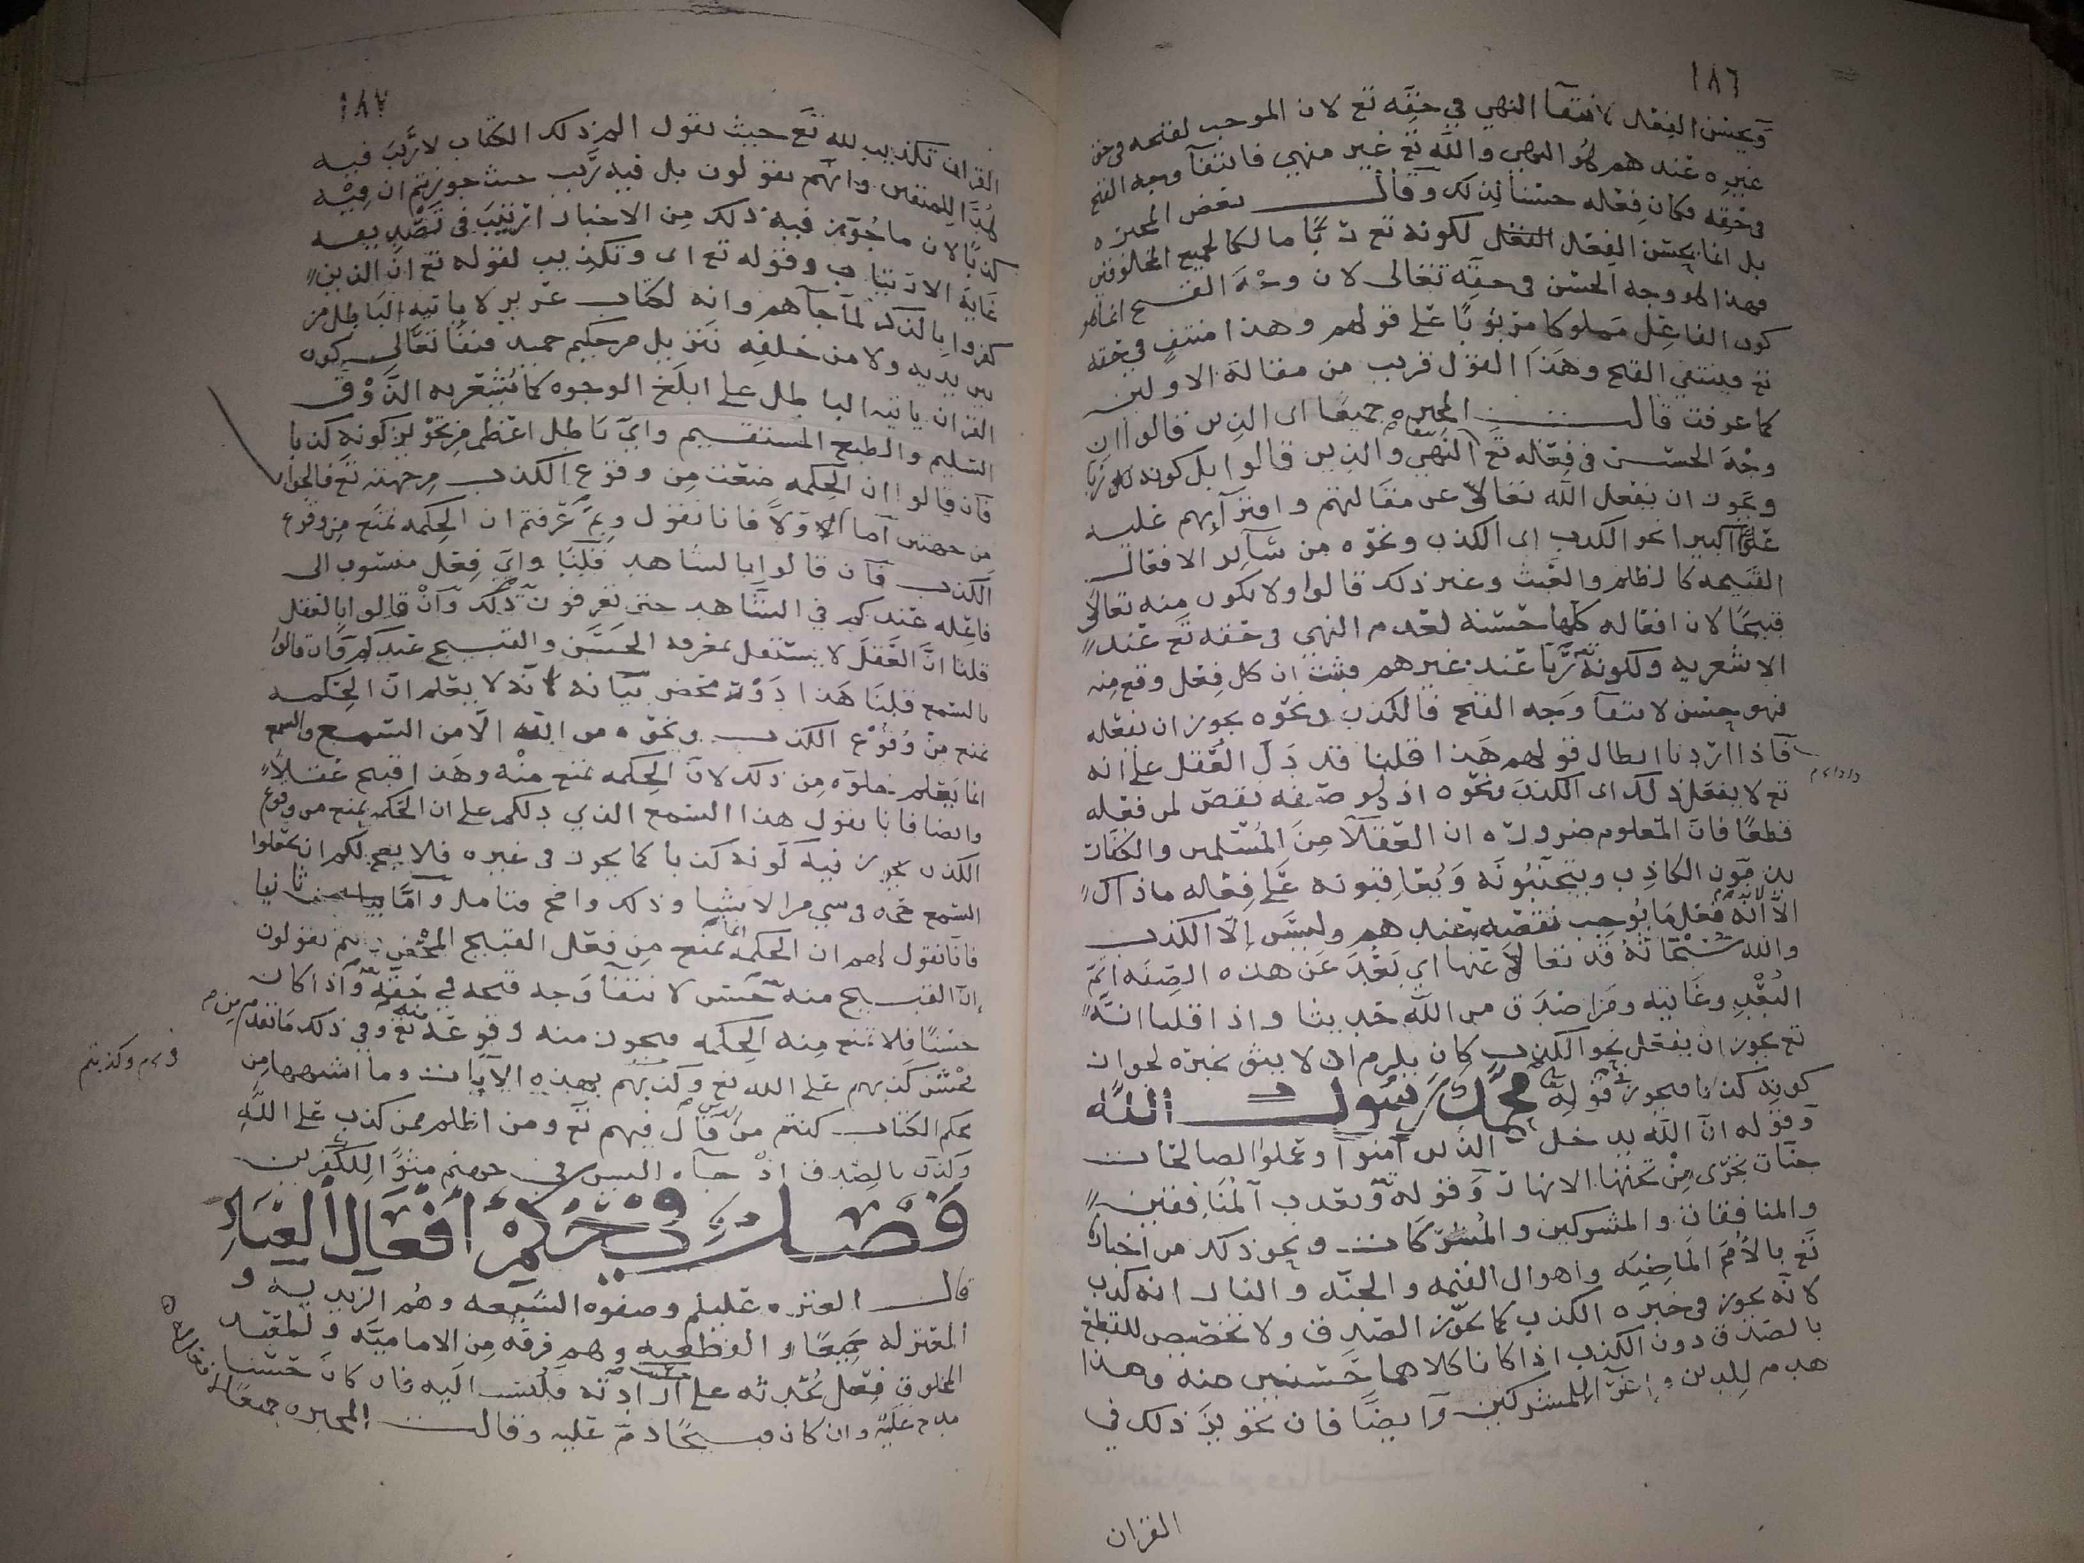 ١٨٦
ويحسن الفعل لانتفآ النهي في حقه تع لان الموجب لقبحه في حق
غيره عندهم هو النهي والله تع غير منهي فانتفآ وجه القبح
في حقه فكان فعله حسنا لذلك وقال بعض المجبره
بل انما يحسن الفعل لكونه تع ربًّا مالكا لجميع المخلوقين
فهذا هو وجه الحسن في حقه تعالى لان وجه القبح انما هو
كون الفاعل مملوكا مربوبًا على قولهم وهذا منتفٍ في حقه
تع فينتفي القبح وهذا القول قريب من مقالة الاولين
كما عرفت قالت المجبره جميعًا اى الذين قالوا ان
وجه الحسن في فعله تع النهي والذين قالوا بل كونه ربًّا
ويجوز ان يفعل الله تعالى عن مقالتهم وافترآئهم عليه
علوًّا كبيرا نحو الكذب اى الكذب ونحوه من سآئر الافعال
القبيحه كالظلم والعبث وغير ذلك قالوا ولا يكون منه تعالى
قبيحًا لان افعاله كلها حسنة لعدم النهي في حقه تع عند
الاشعريه ولكونه ربًّا عند غيرهم فثبت ان كل فعل وقع منه
فهو حسن لانتفآ وجه القبح فالكذب ونحوه يجوز ان يفعله
فاذا اردنا ابطال قولهم هذا قلنا قد دَلّ العقل على انه
تع لا يفعل ذلك اى الكذب ونحوه اذ هو صفه نقص لمن فعله
قطعًا فان المعلوم ضرورة ان العقلآ من المسلمين والكفار
يذمون الكاذب ويتجنبونه ويعاقبونه على فعله ما ذاك
الا لانه فعل ما يوجب نقصه عندهم وليس إلا الكذب
والله سبحانه قد تعالى عنها اي بَعُد عن هذه الصفه اتم
البُعْدِ وغايته ومن اصدق من الله حديثا واذا قلنا انه
تع يجوز ان يفعل نحو الكذب كان يلزم ان لا يثق بخبره لجواز
كونه كذبًا فيجوز في قوله محمد رسول الله
وقوله ان الله يدخل الذين آمنوا وعملوا الصالحات
جنات تجرى من تحتها الانهار وقوله ويعذب المنافقين
والمنافقات والمشركين والمشركات ونحو ذلك من اخباره
تع بالامم الماضيه واهوال القيمه والجنه والنار انه كذب
لانه يجوز في خبره الكذب كما يجوّز الصدق ولا تخصيص للقطع
بالصدق دون الكذب اذا كانا كلاهما حسنين منه وهذا
هدم للدين وإغرآ للمشركين وايضًا فان تجويز ذلك في
القران
١٨٧
القران تكذيب لله تع حيث يقول الم ذلك الكتاب لا ريب فيه
هدًا للمتقين وانهم يقولون بل فيه ريب حيث جوزتم ان فيه
كذبًا لان ما جُوّز فيه ذلك من الاخبار ارتيب في تصديقه
غاية الارتياب وقوله تع اى وتكذيب لقوله تع ان الذين
كفروا بالذكر لما جآءهم وانه لكتاب عزيز لا ياتيه الباطل من
بين يديه ولا من خلفه تنزيل من حكيم حميد فنفا تعالى كون
القران ياتيه الباطل على ابلغ الوجوه كما يُشعر به الذوق
السليم والطبع المستقيم وايّ باطل اعظم من تجويز كونه كذبا
فان قالوا ان الحكمه منعت من وقوع الكذب من جهته تع فالجواب
من جهتين اما اولًا فانا نقول وبم عرفتم ان الحكمه تمنع من وقوع
الكذب فان قالوا بالشاهد قلنا وايّ فعل منسوب الى
فاعله عندكم في الشاهد حتى تعرفون ذلك وان قالوا بالعقل
قلنا انّ العقل لا يستقل بمعرفه الحسن والقبيح عندكم فان قالوا
بالسمع قلنا هذا دَوْر محض بيانه لانه لا يعلم ان الحكمه
تمنع من وُقُوْع الكذب ونحوه من الله الا من السمع والسمع
انما يعلم خلوّه من ذلك لان الحكمه تمنع منه وهذا اقبح عقلًا
وايضا فانا نقول هذا السمع الذي دلكم على ان الحكمه تمنع من وقوع
الكذب يجوز فيه كونه كذبا كما يجوز في غيره فلا يصح لكم ان تجعلوا
السمع حجه في شي من الاشيا وذلك واضح فتامله وامّا ثانيا
فانا نقول لهم ان الحكمه انما تمنع من فعل القبيح المحض وانتم تقولون
إن القبيح منه حسن لانتفآ وجه قبحه في حقه واذا كان
حسنًا فلا تمنع منه الحكمه فيجوز منه وقوعه تع وفي ذلك ما تقدم من
فحش كذبهم على الله تع وكذبهم بهذه الايات وما اشبهها من
محكم الكتاب كنتم من الذين قال فيهم تع ومن اظلم ممن كذب على الله
وكذب بالصدق اذ جآءه اليس في جهنم مثوًا للكفرين
فصل في حكم أفعال العباد
قال العتره عليلم وصفوه الشيعه وهم الزيديه و
المعتزله جميعًا والفطحيه وهم فرقه من الاماميّه والمطرفيه
المخلوق فعل يحدثه على ارادته فينسب اليه فان كان حسنا
مدح عليه وان كان قبيحًا ذم عليه وقالت المجبره جميعًا